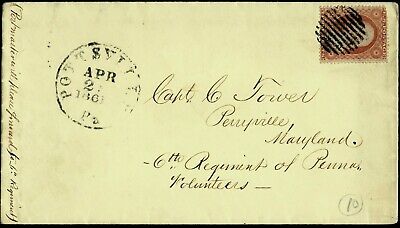 POTTSVILLE
APR
2
1861
Pa
Capt. C Tower
Perryville
Maryland
6th Regiment of Penna
Volunteers
(Postmaster at
Regiment)
10